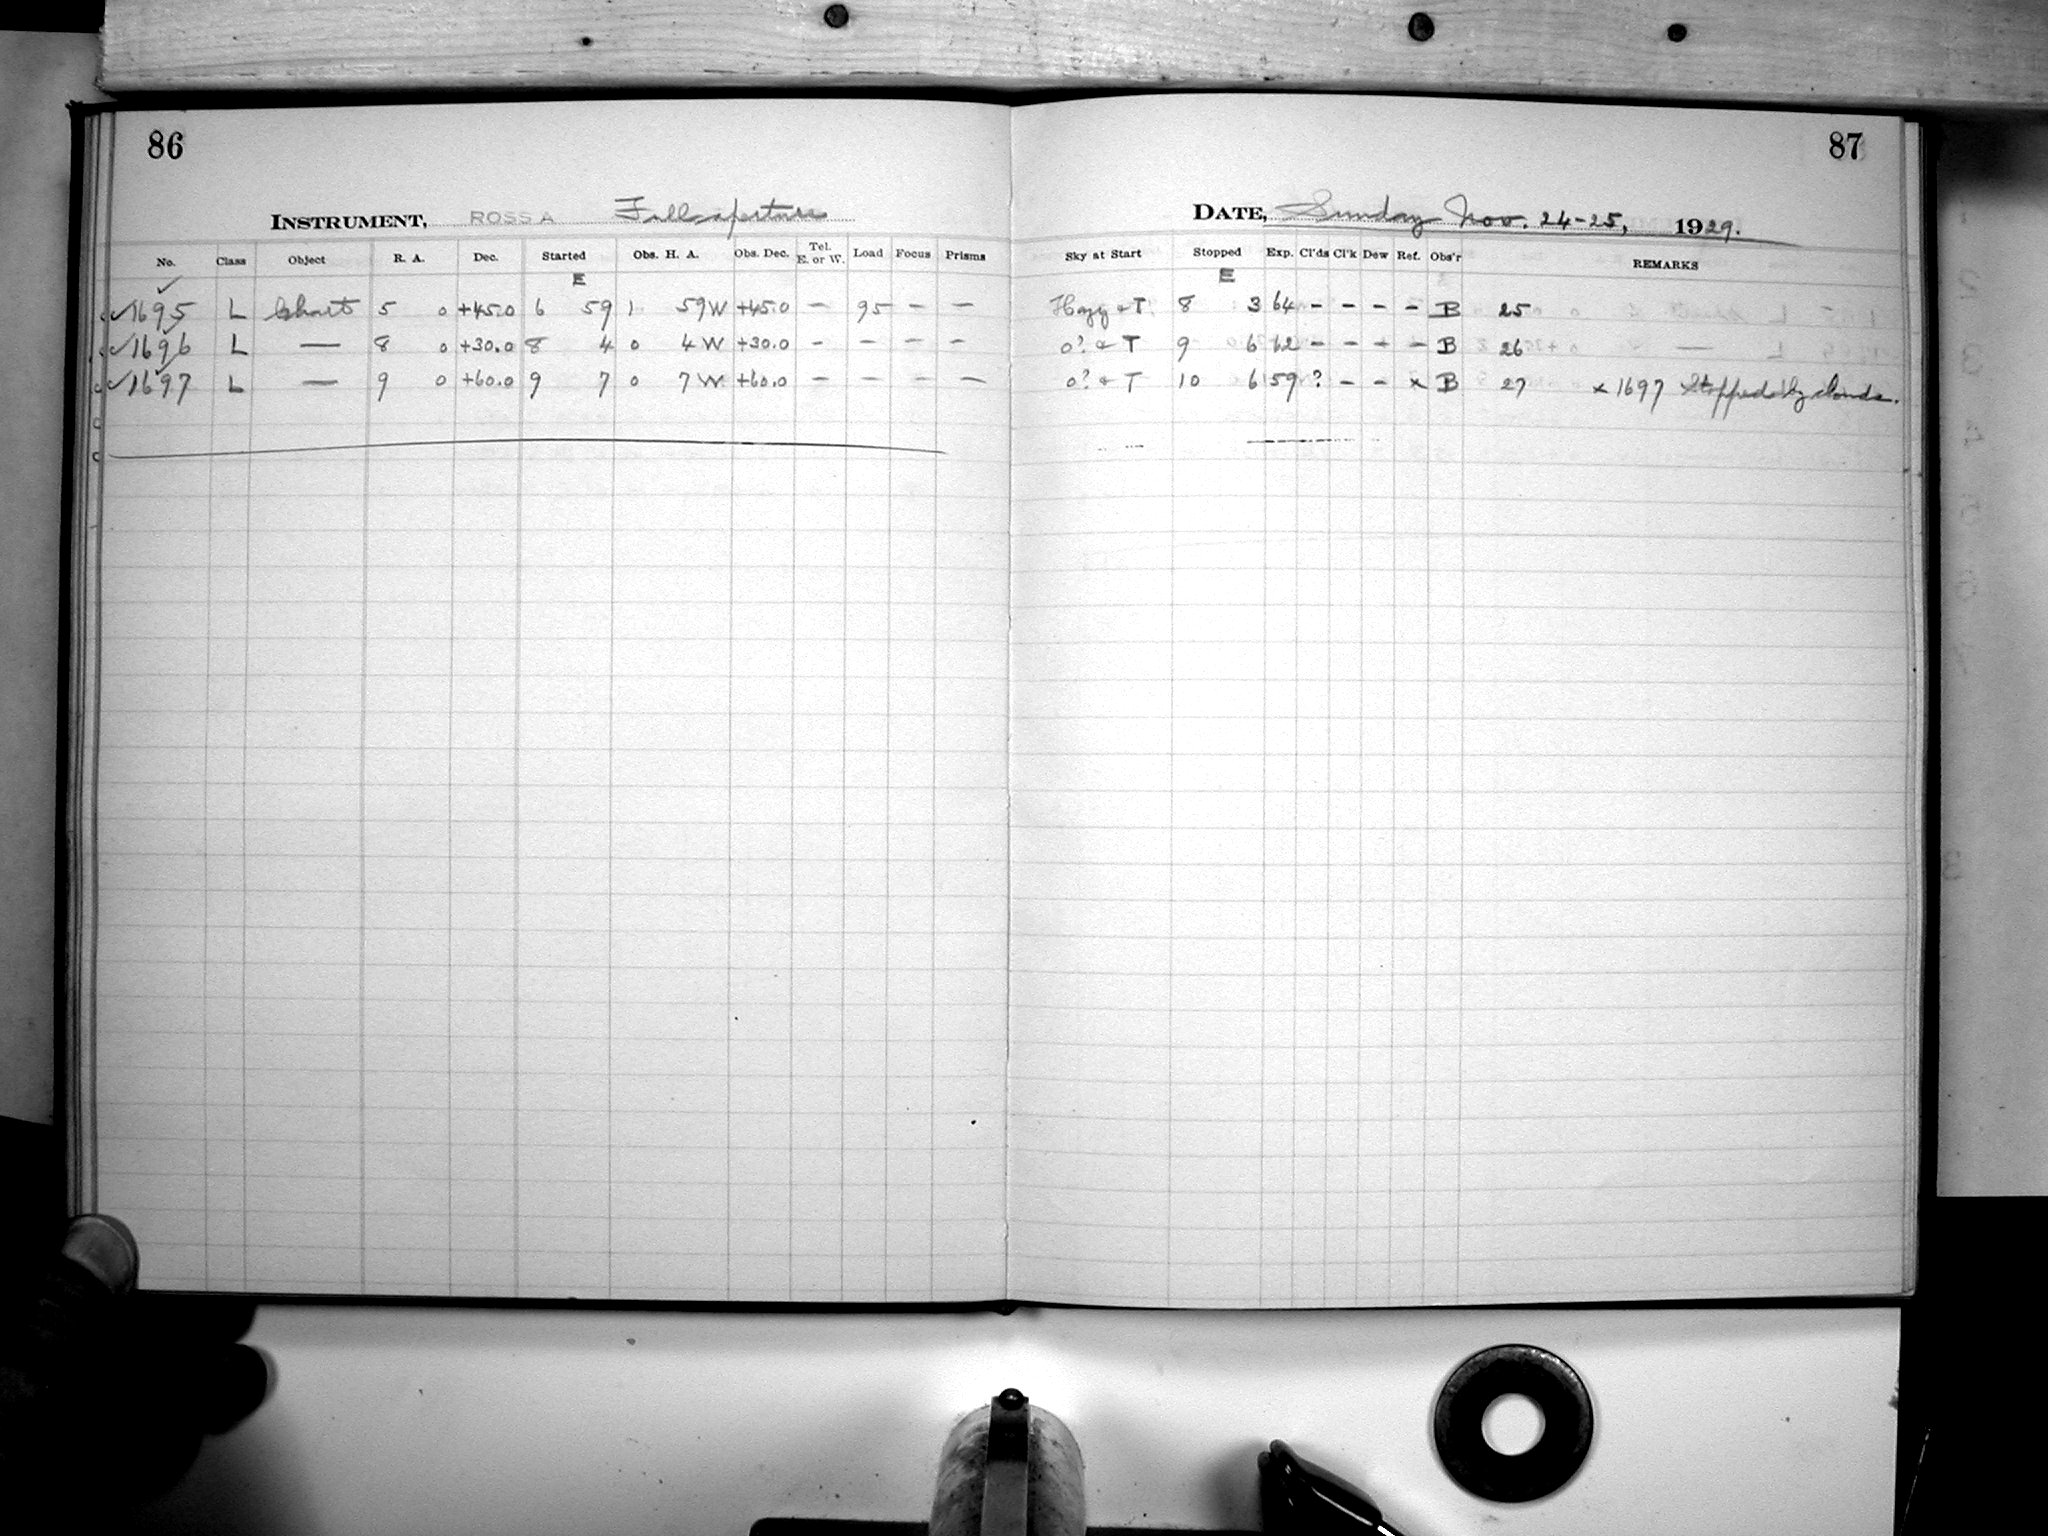 86
INSTRUMENT, ROSS A Full aperture
No. Class Object R. A. Dec. Started Obs. H. A. Obs. Dec. Tel. E. or W. Load Focus Prisms
E
✓1695 L Chart 5 0 +45.0 6 59 1 59W +45.0 — 95 — —
✓1696 L — 8 0 +30.0 8 4 0 4W +30.0 — — — —
✓1697 L — 9 0 +60.0 9 7 0 7W +60.0 — — — —
87
DATE, Sunday Nov. 24-25, 1929.
Sky at Start Stopped Exp. Cl'ds Cl'k Dew Ref. Obs'r REMARKS
E
Hazy & T 8 3 64 — — — — B 25
0? & T 9 6 62 — — — — B 26
0? & T 10 6 59 ? — — x B 27 x 1697 Stopped by clouds.